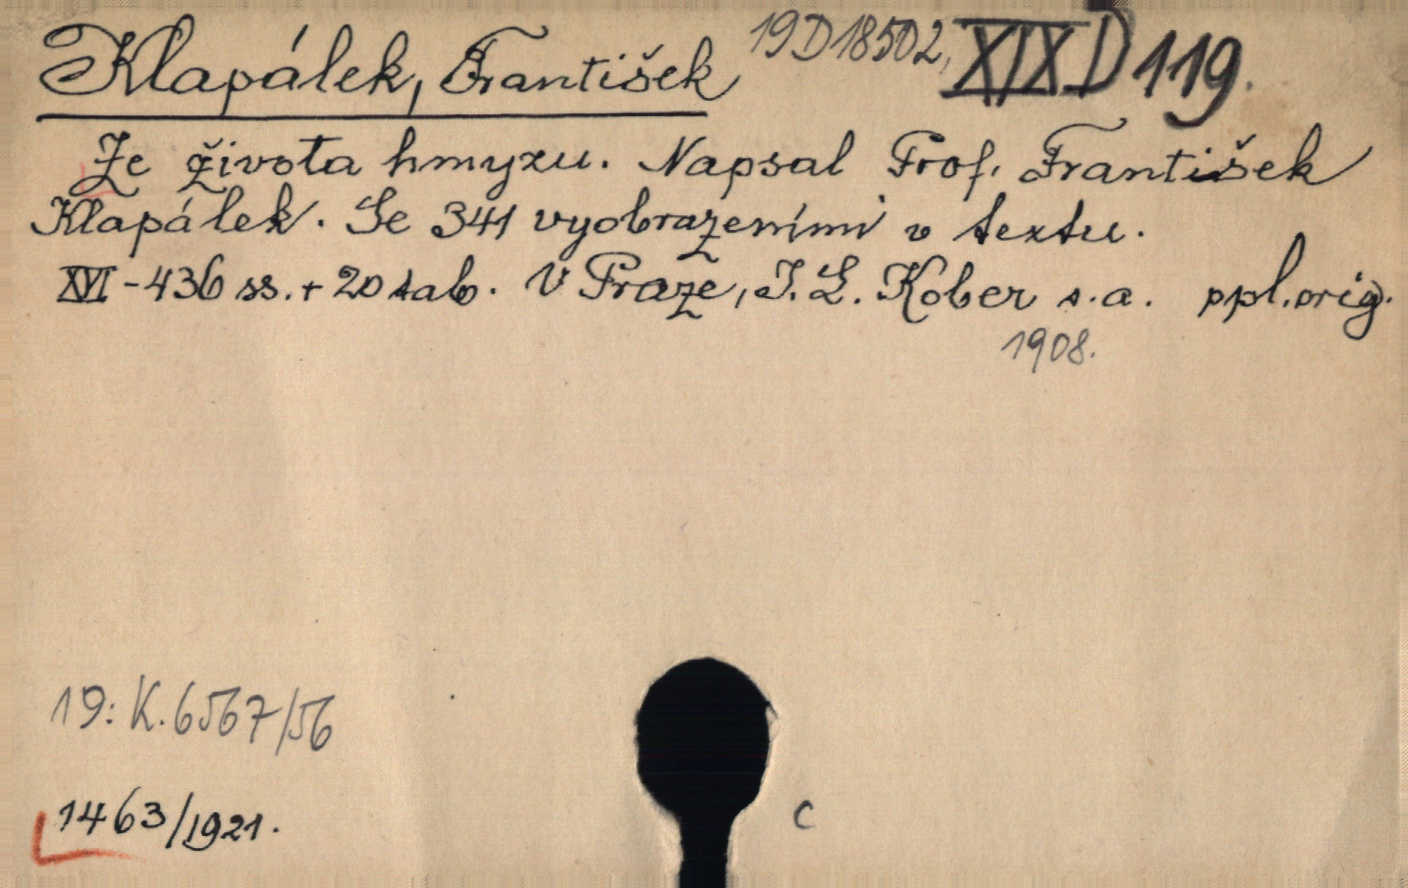 Klapálek, František 19D18502, XIX D 119.
Ze života hmyzu. Napsal Prof. František
Klapálek. Se 341 vyobrazeními v textu.
XVI-436 ss. + 20 tab. V Praze, I. L. Kober s. a. ppl. orig.
1908.
19: K. 6567/56
1463/1921.
C